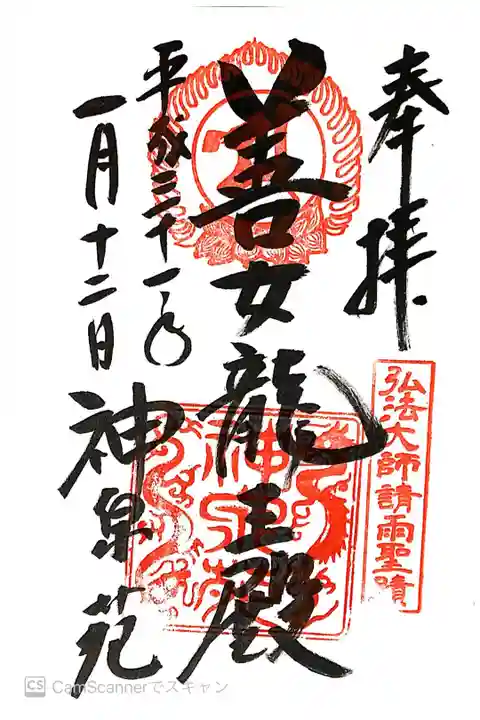 奉拝
弘法大師請雨聖蹟
善女龍王殿
神泉苑
平成三十一年
一月十二日
神泉苑
CS CamScannerでスキャン